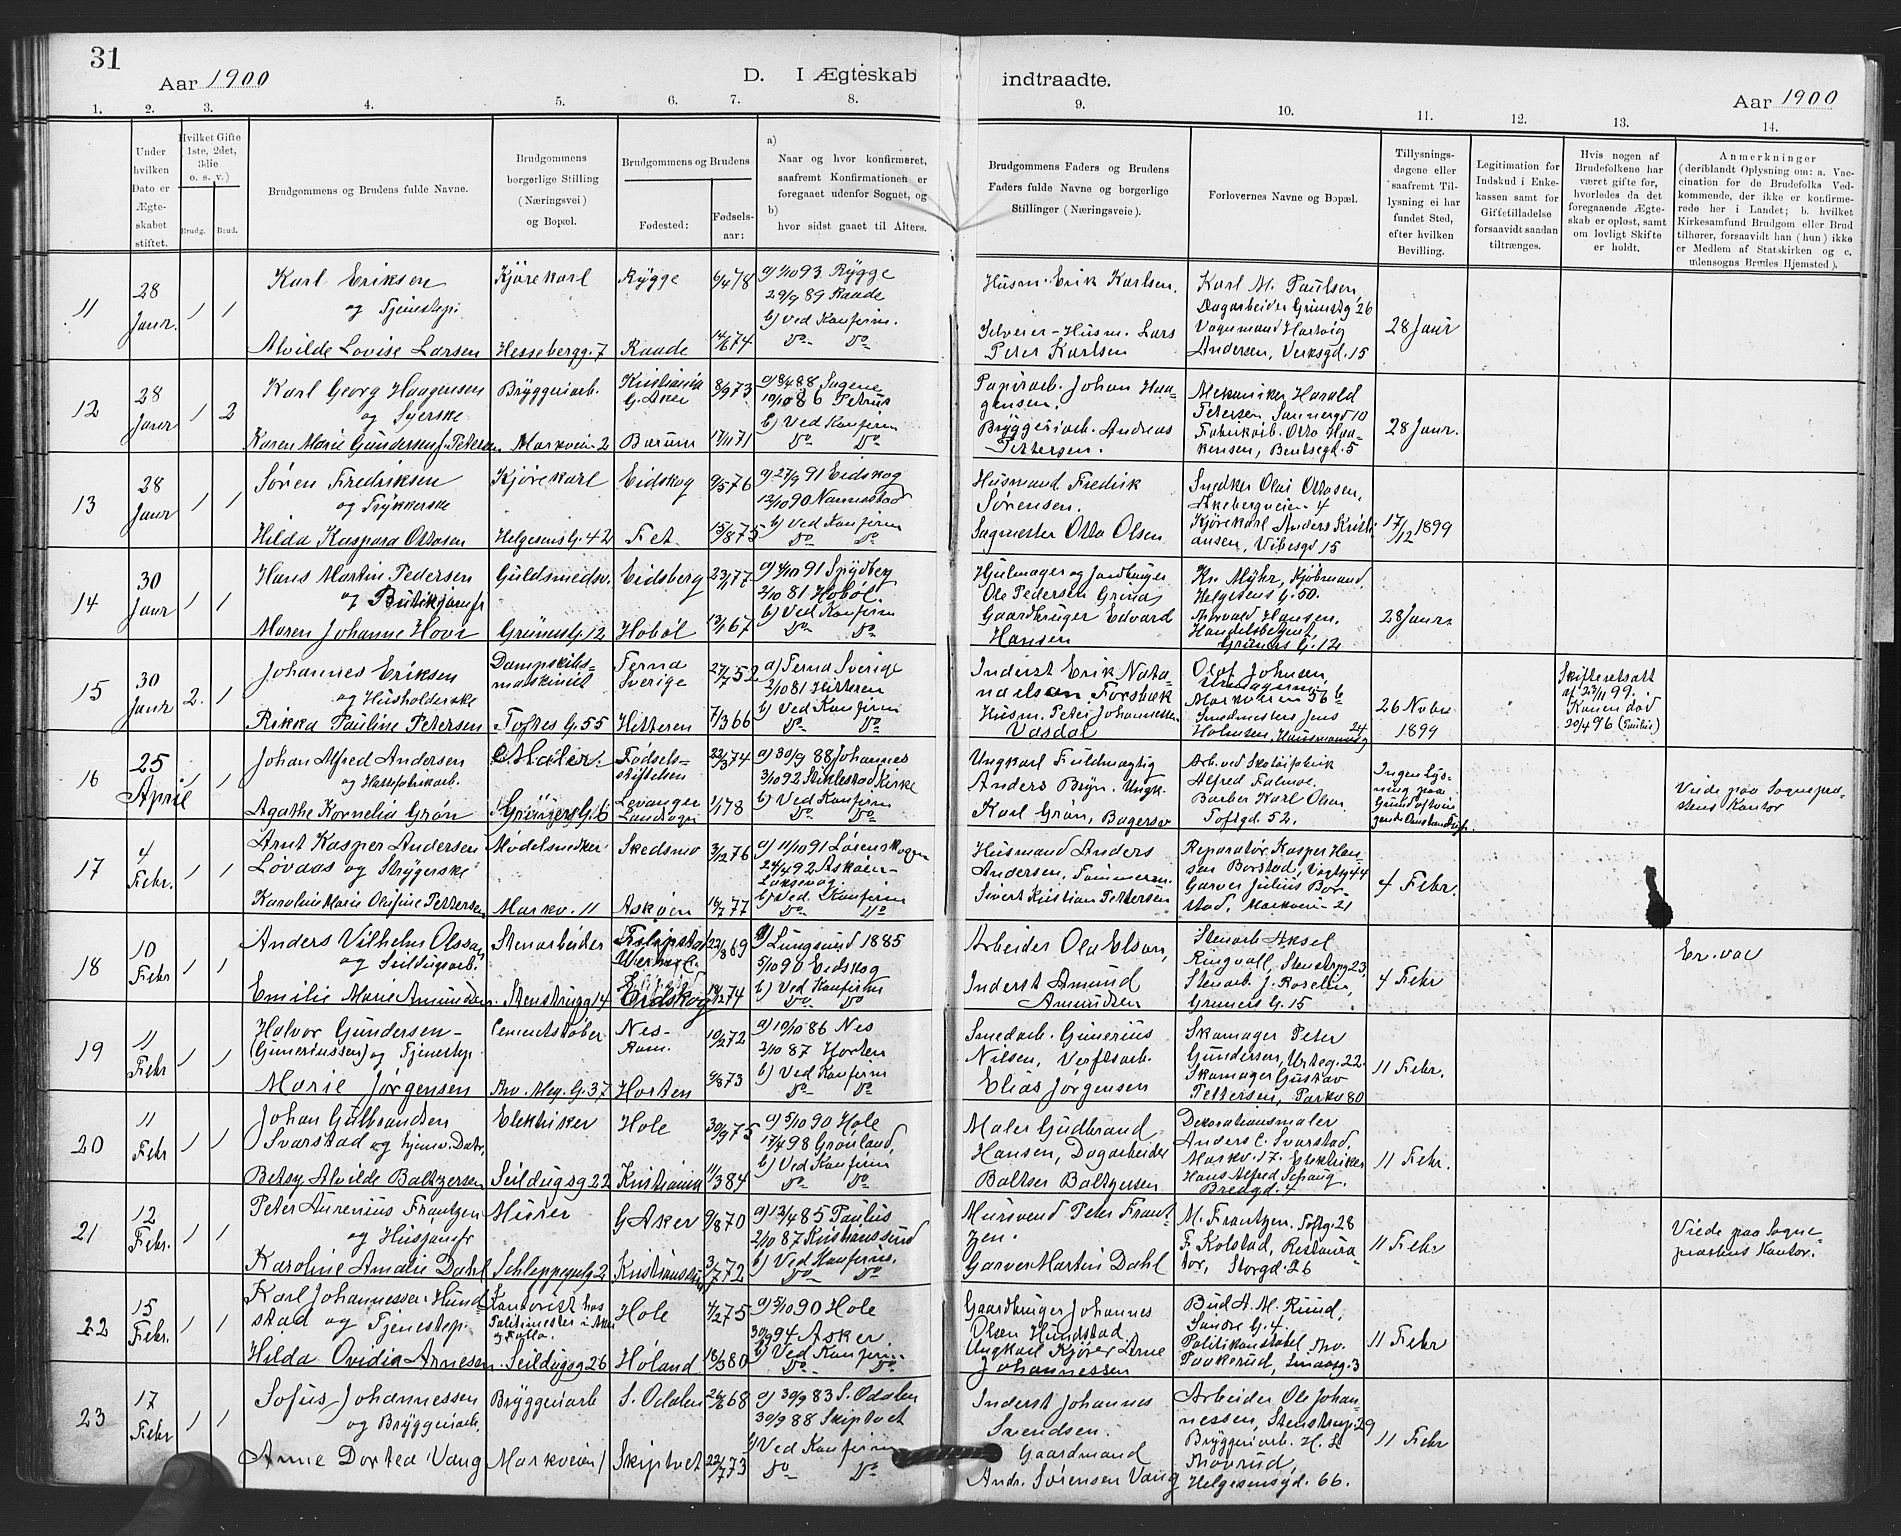 31
Aar 1900
D. I Ægteskab
indtraadte.
Aar 1900
1. 2. 3. 4. 5. 6. 7. 8. 9. 10. 11. 12. 13. 14.
Under hvilken Dato er Ægteskabet stiftet.
Hvilket Gifte 1ste, 2det, 3die o. s. v.)
Brudg. Brud.
Brudgommens og Brudens fulde Navne.
Brudgommens borgerlige Stilling (Næringsvei) og Bopæl.
Brudgommens og Brudens
Fødested:
Fødselsaar:
a) Naar og hvor konfirmeret, saafremt Konfirmationen er foregaaet udenfor Sognet, og
b) hvor sidst gaaet til Alters.
Brudgommens Faders og Brudens Faders fulde Navne og borgerlige Stillinger (Næringsveie).
Forlovernes Navne og Bopæl.
Tillysningsdagene eller saafremt Tillysning ei har fundet Sted, efter hvilken Bevilling.
Legitimation for Indskud i Enkekassen samt for Giftetilladelse forsaavidt saadan tiltrænges.
Hvis nogen af Brudefolkene har været gifte før, hvorledes da det foregaaende Ægteskab er opløst, samt om lovligt Skifte er holdt.
Anmerkninger (deriblandt Oplysning om: a. Vaccination for de Brudefolks Vedkommende, der ikke er konfirmerede her i Landet; b. hvilket Kirkesamfund Brudgom eller Brud tilhører, forsaavidt han (hun) ikke er Medlem af Statskirken og c. udensogns Brudes Hjemsted).
11 28 Janr. 1 1 Karl Eriksen Kjørekarl Rygge 6/4 78 a) 1/10 93 Rygge Husm. Erik Karlsen. Karl M. Paulsen,
og Tjenestepi. 29/9 89 Raade Dagarbeider Grünstg 26
b) Ved Konfirm. Vognmand Hartvig 28 Janr
Alvilde Lovise Larsen Hessebergg. 7 Raade 14/6 74 Do Do Peter Karlsen Andersen, Verksgd. 15
12 28 Janr 1 2 Karl Georg Haagensen Bryggeriarb. Kristiania G. Aker 8/9 73 a) 8/4 88 Sagene Papirarb. Johan Haagensen. Mekaniker Harald
og Syerske 10/10 86 Petrus Petersen, Sannergd 10
b) Ved Konfirm Bryggeriarb. Andreas Fabrikarb. Otto Haa- 28 Janr.
Karen Marie Gundersen f. Petersen Markvei. 2 Bærum 17/11 71 Do Do Pettersen. kensen, Bentsegd. 5
13 28 Janr 1 1 Søren Fredriksen Kjørekarl Eidskog 9/5 76 a) 27/9 91 Eidskog Husmand Fredrik Snedker Olai Ottosen,
og Trykkerske 12/10 90 Nannestad Sørensen. Akebergveien 4
b) Ved Konfirm Kjørekarl Anders Kristi- 17/12 1899
Hilda Kaspara Ottosen Helgesensg. 42 Fet. 15/8 75 Do Do Sagmester Otto Olsen ansen, Vibesgd 15
14 30 Janr 1 1 Hans Martin Pedersen Guldsmedsv. Eidsberg 23/1 77 a) 4/10 91 Spydbeg Hjulmager og Jordbruger Kr. Myhr, Kjøbmand,
og Butikjomfr 2/10 81 Hobøl. Ole Pedersen Grinas Helgesens G. 50.
b) Ved Konfirm Gaardbruger Edvard Thorvald Hansen, 28 Janr.
Maren Johanne Hovr Grünersg. 12 Hobøl 13/1 67 Do Do Hansen Handelsbetjent, Grüners G. 12
15 30 Janr 2. 1 Johannes Eriksen Dampskibsmaskinist Ferna Sverige 27/7 52 a) Ferna Sverige Inderst Erik Nata- Olof Johnsen, Skifteretsatt
og Husholderske 2/10 81 Hitteren naelsen Forsbæk Urmager af 23/11 99.
b) Ved Konfirm Husm. Peter Johannessen Markveien 56 b 26 Novbr Konen død
Rikka Pauline Petersen Toftes G. 55 Hitteren 7/3 66 Do Do Vasdal Smedmester Jens Holmsen, Hausmannsg 24 1899 20/4 96 (Paulus)
16 25 April 1 1 Johan Alfred Andersen Maler. Fødselsstiftelsen 22/3 74 a) 30/9 88 Johannes Ungkarl Fuldmægtig Arb. ved Skotøifabrik Ingen Lys-
og Hattefabrikarb. 3/10 92 Stiklestad Kirke Anders Bryn. Ungk. Alfred Falmoe. ning paa Viede paa Sognepre-
b) Ved Konfirm Barber Karl Olsen Grund af tvin- stens Kontor
Agathe Kornelia Grøn Grünersg. 6 Levanger Landsogn 1/1 78 Do Do Karl Grøn, Bagersv Toftgd 52. gende Omstændigh.
17 4 Febr. 1 1 Arnt Kasper Andersen Modelsnedker Skedsmo 3/12 76 a) 11/10 91 Lørenskogen Husmand Anders Reparatør Kasper Han-
Lovaas og Strygerske 24/4 92 Askøen- Andersen, Tømmerm. sen Borstad, Vogtsg 44
Laksevåg Garver Julius Bor- 4 Febr.
Karoline Marie Olufine Pettersen Markv. 11 Askøen 16/7 77 b) Ved Konfirm Do Do Sivert Kristian Pettersen stad, Markvei 21
18 10 Febr 1 1 Anders Vilhelm Olsson Stenarbeider Filipstad Verml. 22/8 69 a) Lungsund 1885 Arbeider Ola Elson, Stenarb Aksel
og Seildugsarb. 5/10 90 Eidskog Ringvoll, Stenstrpg 23, Er. vac
b) Ved Konfirm Inderst Amund Stenarb. J. Roselin, 4 Febr
Emilie Marie Amundsen. Stenstrugg 14 Eidskog 18/12 74 Do Do Amundsen Grüners G. 15
19 11 Febr 1 1 Halvor Gundersen - Cementstøber Nes- Rom. 10/2 72 a) 10/10 86 Nes Smedarb. Gunerius Skomager Peter
(Guneriussen) og Tjenestepi 2/10 87 Horten Nilsen, Verftsarb. Gundersen, Urteg. 22.
b) Ved Konfirm Elias Jørgensen Skomager Gustav 11 Febr.
Marie Jørgensen Thv. Meg. G. 37 Horten 5/8 73 Do Do Pettersen, Parkv 80
20 11 Febr 1 1 Johan Gulbrandsen Elektriker Hole 30/9 75 a) 5/10 90 Hole Maler Gudbrand Dekorationsmaler
Svarstad og hjemv. Datr. 17/4 98 Grønland, Hansen, Dagarbeider Anders C. Svarstad,
b) Ved Konfirm Markv. 17. Elektriker 11 Febr.
Betsy Alvilde Baltzersen Seildugsg 22 Kristiania 11/3 84 Do Do Baltser Baltzersen Hans Alfred Schaug, Bredgd. 4
21 12 Febr. 1 1 Peter Aurenius Frantzen Murer G Aker 9/8 70 a) 12/4 85 Paulus Mursvend Peter Frant- M. Frantzen. Toftg. 28
og Husjomfr 2/10 87 Kristianssund zen. F. Kolstad, Restaura- 11 Febr Viede paa Sogne-
b) Ved Konfirm. tør, Storgd. 26 prestens Kontor.
Karoline Amalie Dahl Schleppegrg 2 Kristianssund 3/7 72 Do Do Garver Martin Dahl
22 15 Febr. 1 1 Karl Johannessen Hund- Kontorist hos Hole 4/2 75 a) 5/10 90 Hole Gaardbruger Johannes Bud A. M. Rund,
stad og Tjenestepi. Politimester i Aker og Follo. 30/9 94 Asker Olsen Hundstad. Søndre G. 4.
b) Ved Konfirm. Ungkarl Kjører Arne Politikonstabel Thv. 11 Febr
Hilda Ovidia Arnesen. Seildugsg 26 Høland 18/3 80 Do Do Johannessen Paakerud, Smaag. 3
23 17 Febr 1 1 Sofus Johannessen Bryggeriarb S. Odalen 26/6 68 a) 30/9 83 S. Odalen Inderst Johannes Arbeider Ole Johan-
og Bryggeriarb. 30/9 88 Skiptvet Svendsen. nessen, Stenstrup 29
b) Ved Konfirm Gaardmand Bryggeriarb. H. L. 11 Febr
Anne Dortea Vang Markveien 1 Skiptvet 22/7 73 Do Do Andr. Sørensen Vang Thovrud, Helgesensgd. 66.